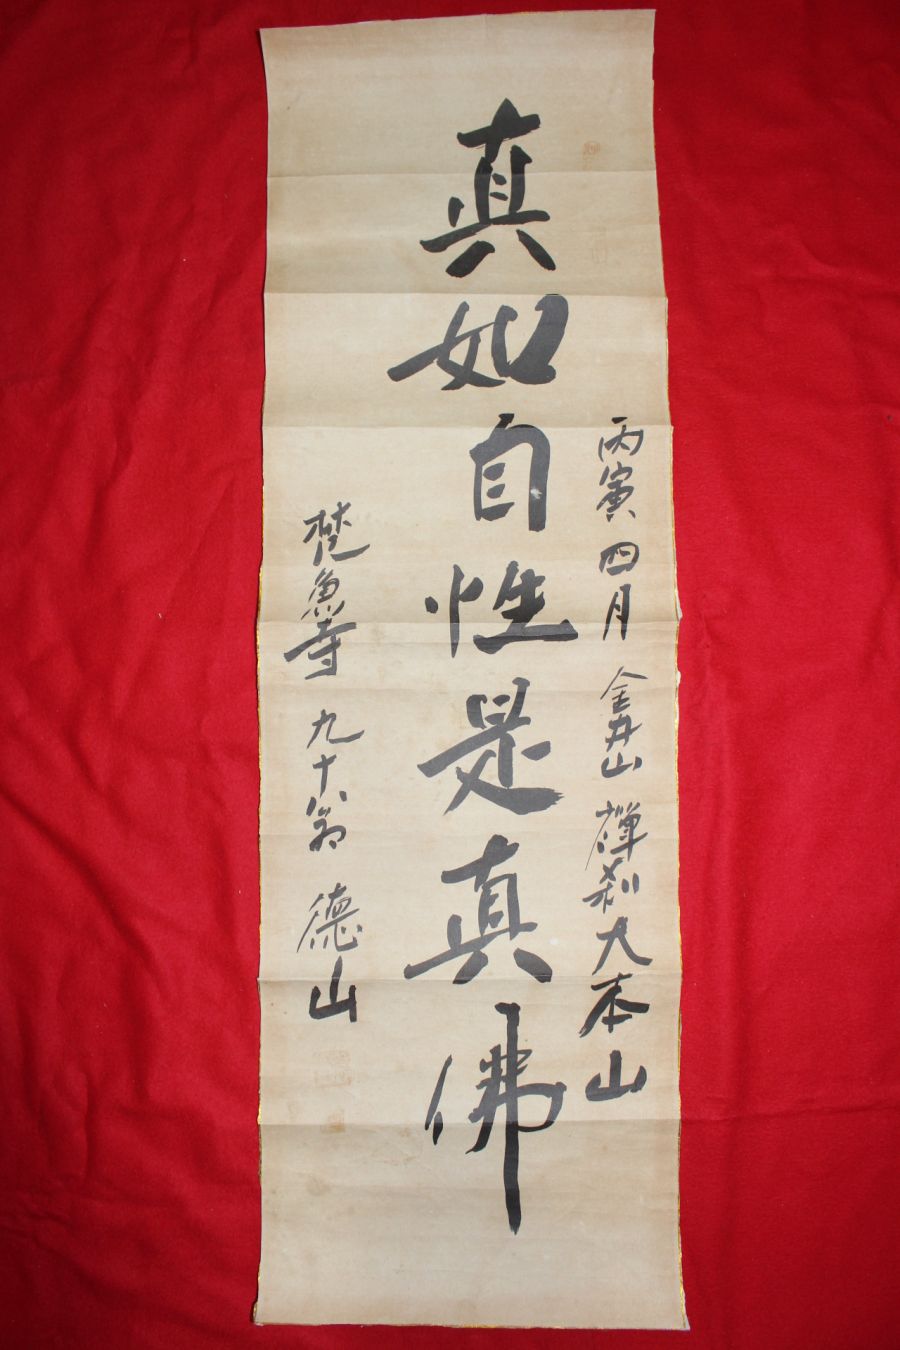 丙寅四月 金井山 禪刹大本山
真如自性是真佛
梵魚寺 九十翁 德山